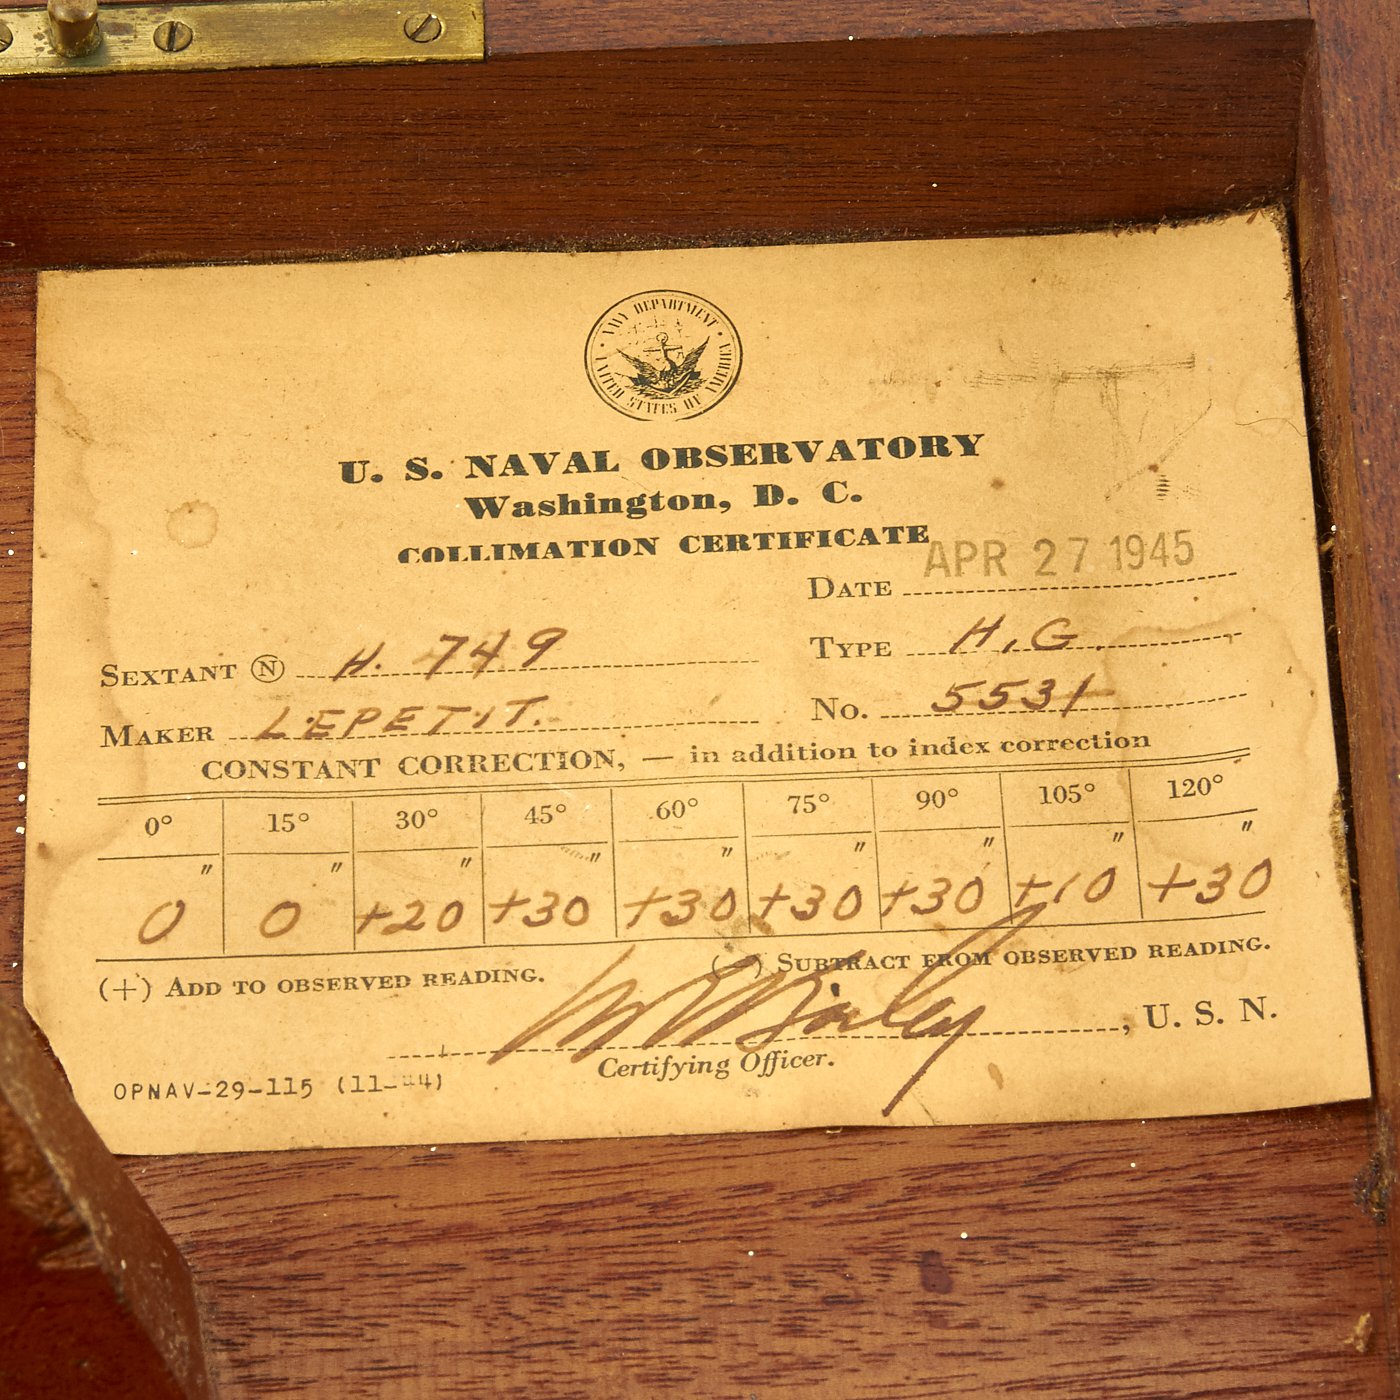 NAVY DEPARTMENT · UNITED STATES OF AMERICA ·
U. S. NAVAL OBSERVATORY
Washington, D. C.
COLLIMATION CERTIFICATE
DATE APR 27 1945
SEXTANT Ⓝ H. 749 TYPE H.G.
MAKER LEPETIT. No. 5531
CONSTANT CORRECTION, — in addition to index correction
0° 15° 30° 45° 60° 75° 90° 105° 120°
" " " " " " " " "
0 0 +20 +30 +30 +30 +30 +10 +30
(+) ADD TO OBSERVED READING. (-) SUBTRACT FROM OBSERVED READING.
, U. S. N.
Certifying Officer.
OPNAV-29-115 (11-44)